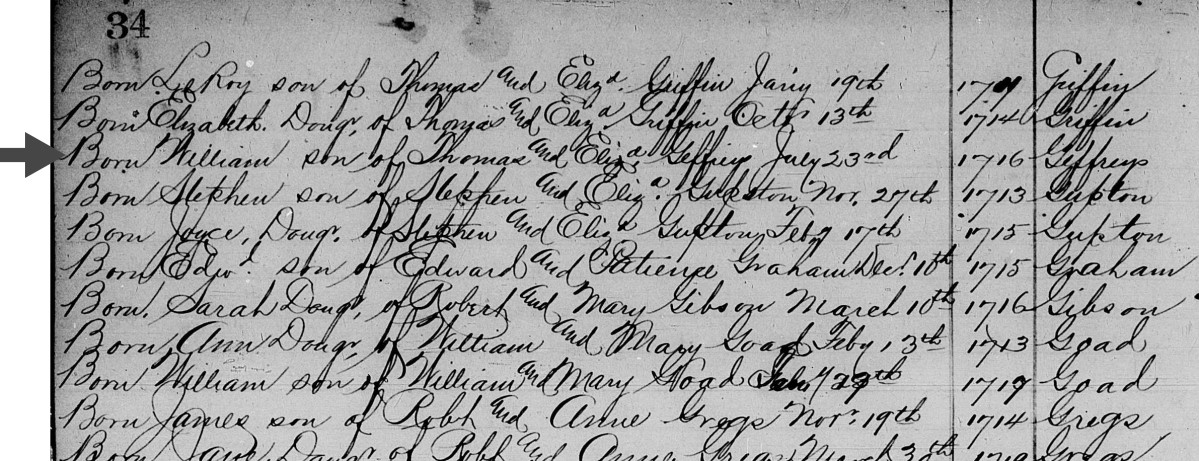 34
Born LeRoy son of Thomas and Eliza. Griffin Jan'y 19th Griffin
Born Elizabeth. Daugr, of Thomas and Eliza Griffin Octr 13th 1714 Griffin
Born William son of Thomas and Eliza Geffreys July 23rd 1716 Geffreys
Born Stephen son of Stephen and Eliza. Gupton Nov. 27th 1713 Gupton
Born Joyce, Daugr. of Stephen and Eliza Gupton Feby 17th 1715 Gupton
Born Edwd. son of Edward and Patience Graham Decr. 10th 1715 Graham
Born. Sarah Daugr, of Robert and Mary Gibson March 10th 1716 Gibson
Born, Ann Daugr, of William and Mary Goad Feby 13th 1713 Goad
Born William son of William and Mary Goad 1719 Goad
Born James son of Robt and Anne Gregs Novr. 19th 1714 Gregs
Born Jane Daugr of Robt and Anne Gregs March 30th Gregs